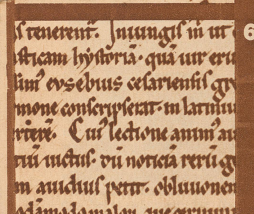 s tenerent᷑. Iniungis m̄ ut
sticam hystoriā quā uir eru
sim᷒ eusebius cesariensis gr
mone conscripserat in latinū
rterē. Cui᷒ lectione anim᷒ au
tiū uictus dū noticiā rerū g
m auidius petit obliuionem